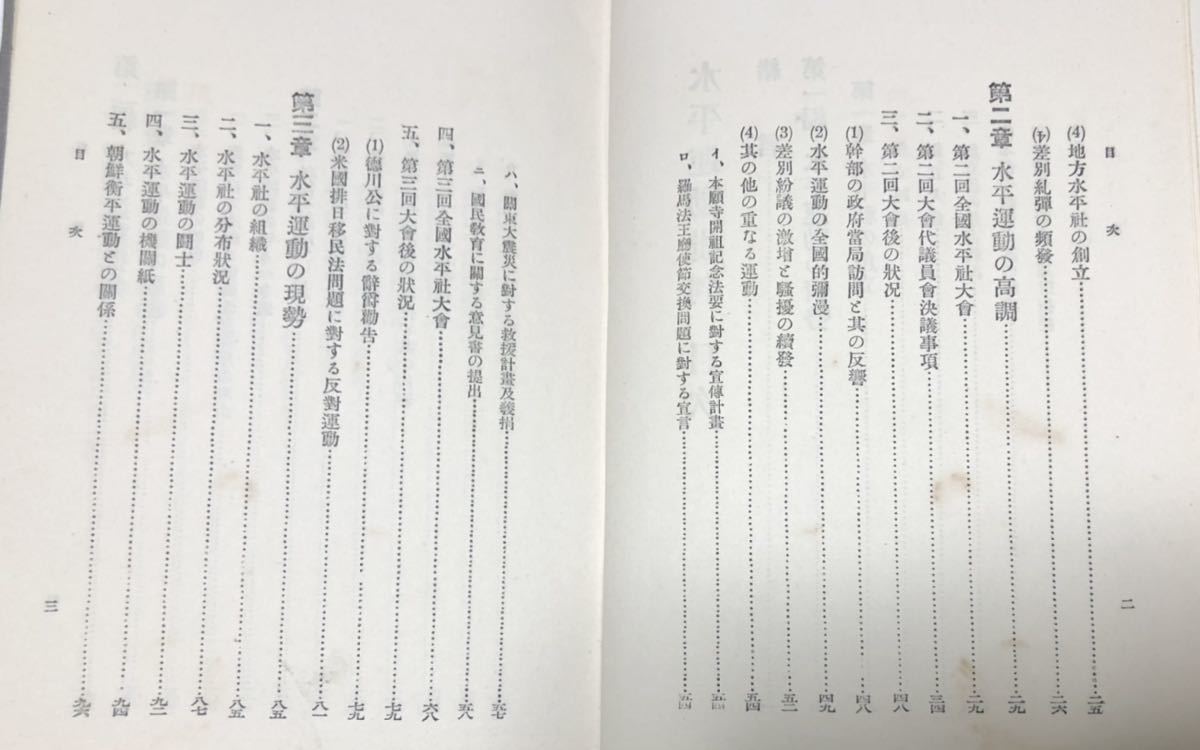 目次
(4)地方水平社の創立……二五
差別糺彈の頻發……二六
第二章 水平運動の高調……二九
一、第二回全國水平社大會……二九
二、第二回大會代議員會決議事項……三四
三、第二回大會後の狀況……四八
(1)幹部の政府當局訪問と其の反響……四八
(2)水平運動の全國的彌漫……四九
(3)差別紛議の激增と騷擾の續發……五二
(4)其の他の重なる運動……五四
イ、本願寺開祖記念法要に對する宣傳計畫……五四
ロ、羅馬法王廳使節交換問題に對する宣言……五四
二
ハ、關東大震災に對する救援計畫及義捐……五七
ニ、國民敎育に關する意見書の提出……五八
四、第三回全國水平社大會……六八
五、第三回大會後の狀況……七九
(1)德川公に對する辭爵勸吿……七九
(2)米國排日移民法問題に對する反對運動……八一
第三章 水平運動の現勢……八五
一、水平社の組織……八五
二、水平社の分布狀況……八五
三、水平運動の鬪士……八七
四、水平運動の機關紙……九二
五、朝鮮衡平運動との關係……九四
目次
……九六
三